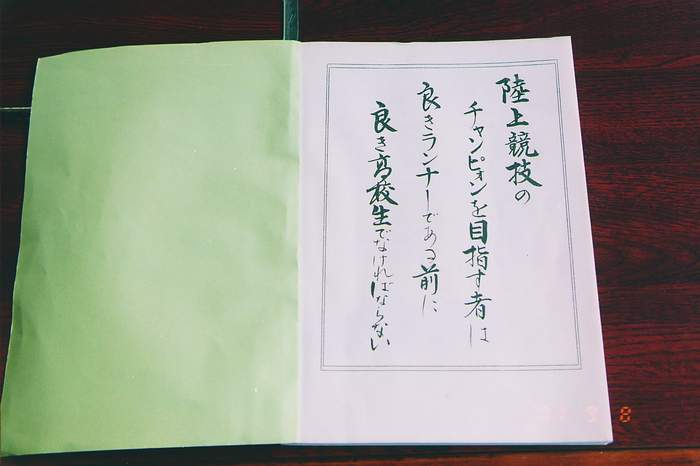 陸上競技の
チャンピオンを目指す者は
良きランナーである前に
良き高校生でなければならない